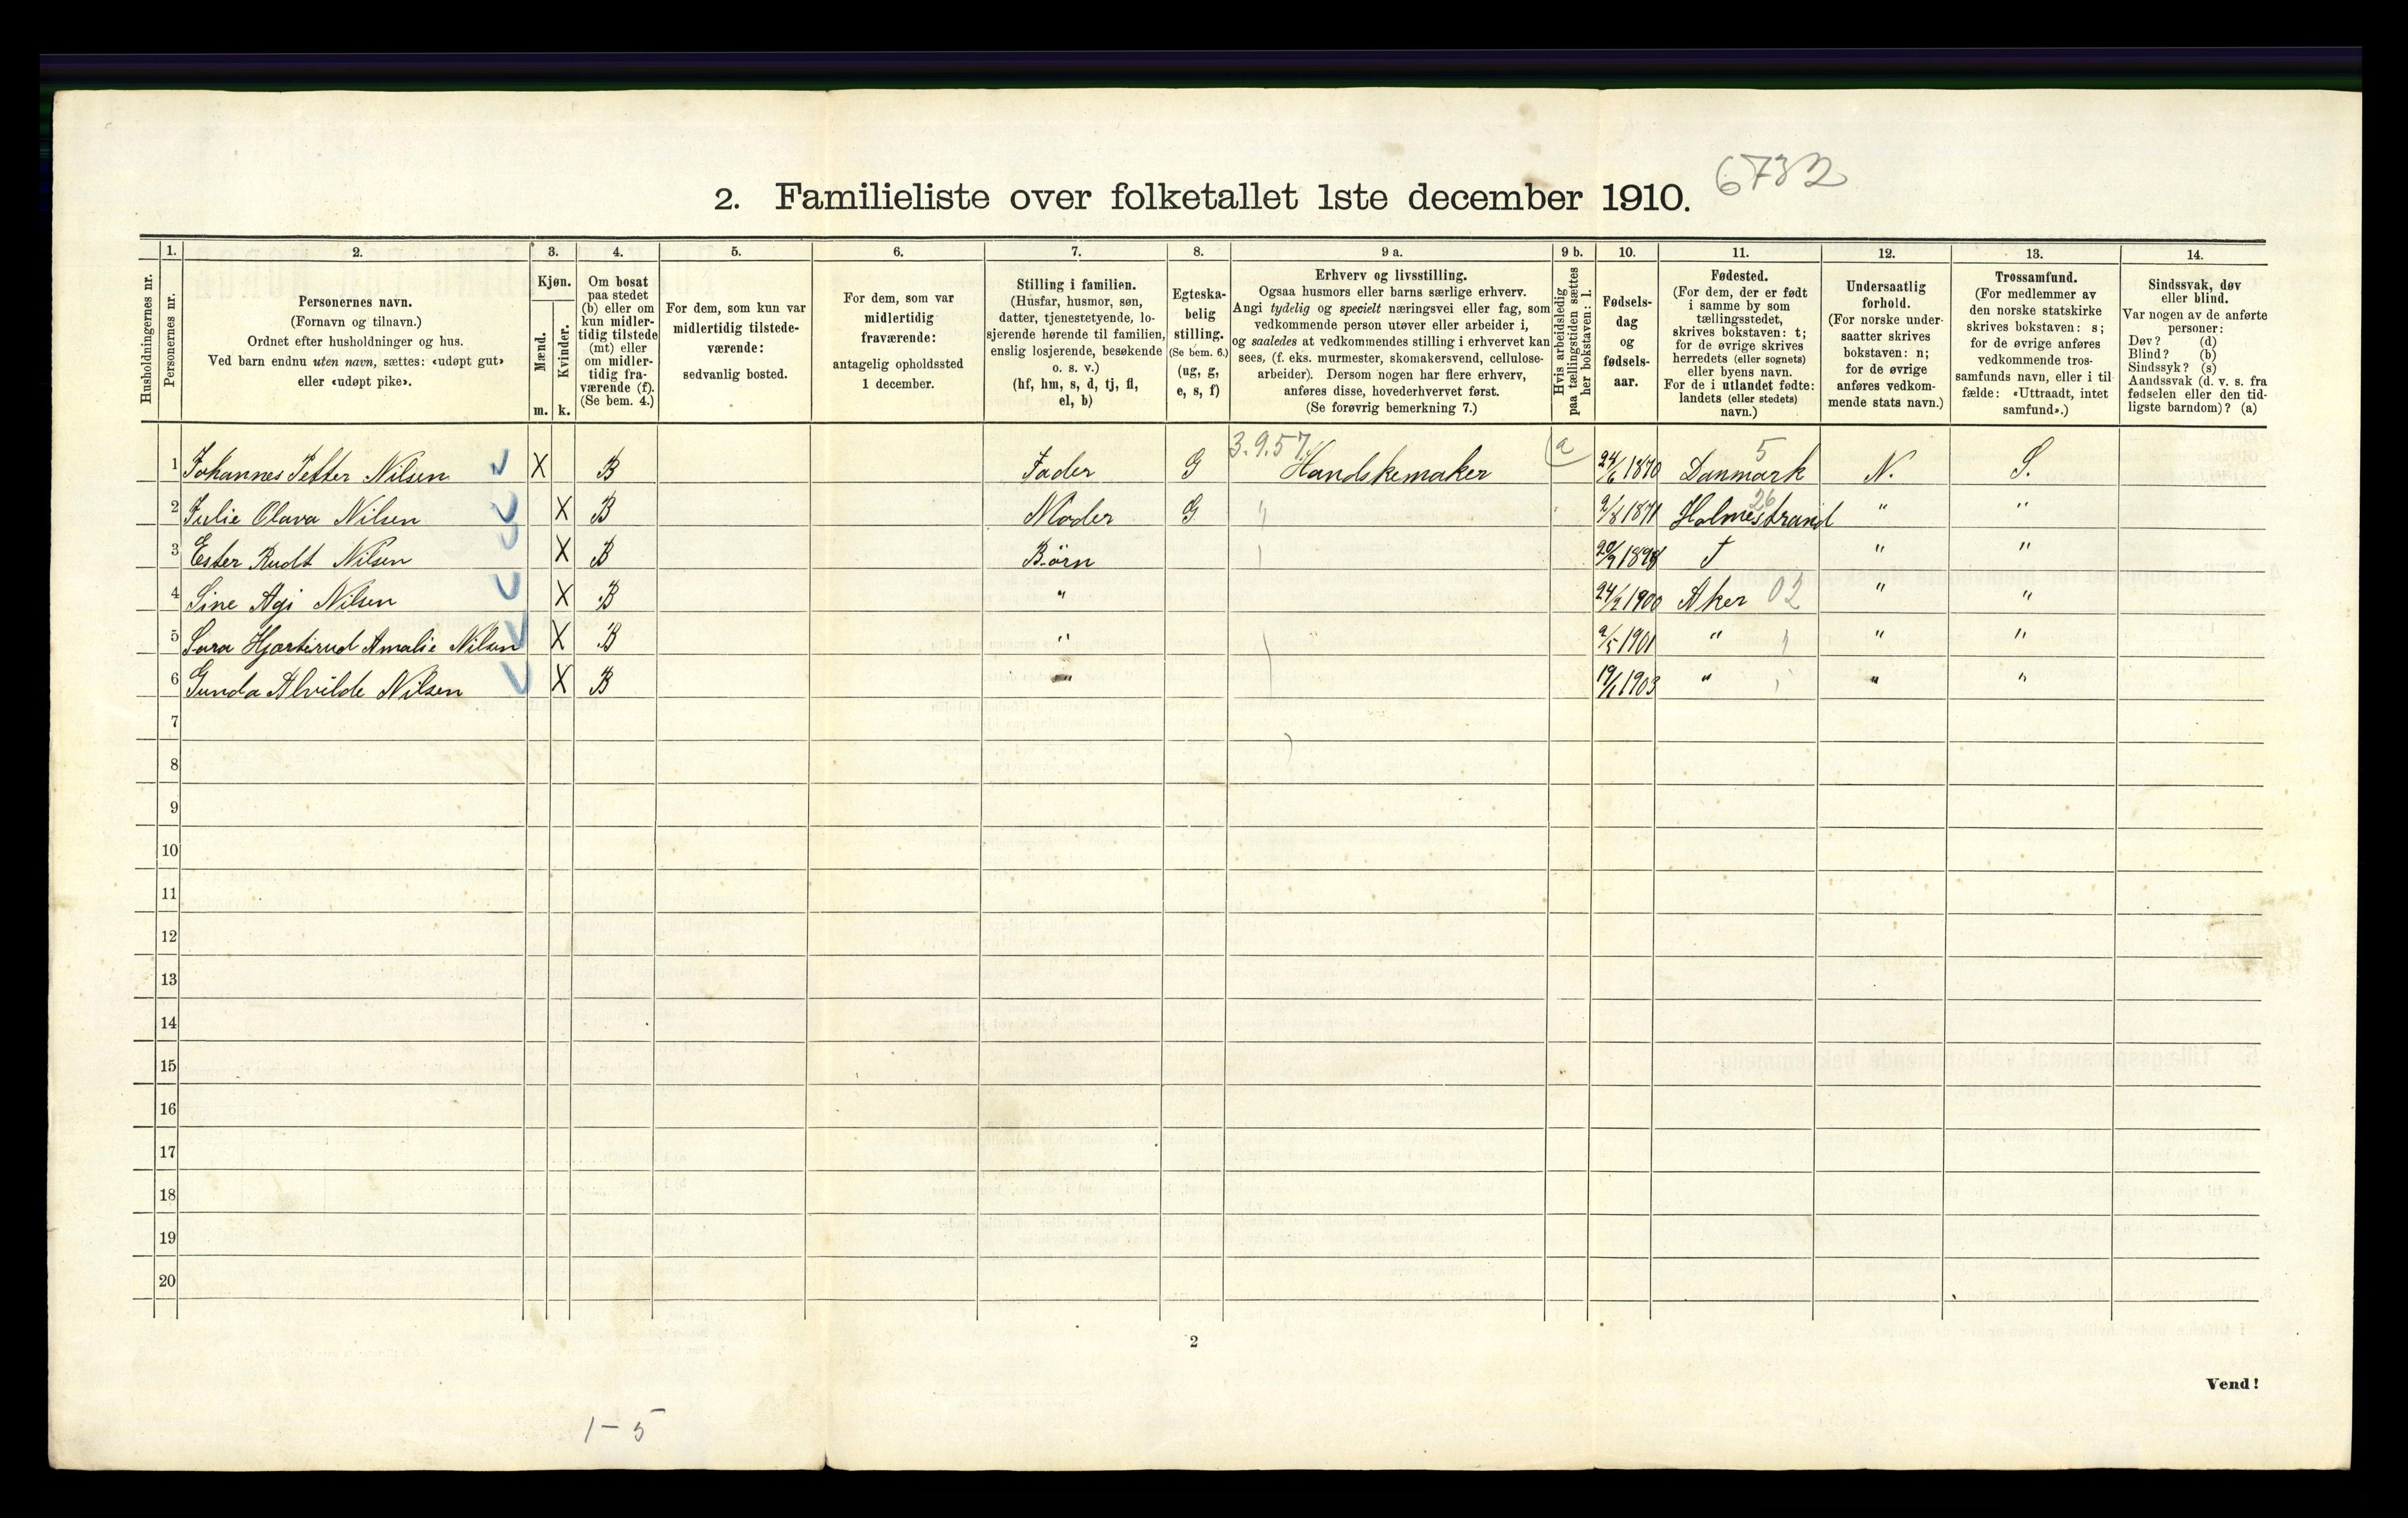 6732
2. Familieliste over folketallet 1ste december 1910.
Husholdningernes nr.
1.
Personernes nr.
2.
Personernes navn.
(Fornavn og tilnavn.)
Ordnet efter husholdninger og hus.
Ved barn endnu uten navn, sættes: «udøpt gut»
eller «udøpt pike».
3.
Kjøn.
Mænd.
Kvinder.
m. k.
4.
Om bosat
paa stedet
(b) eller om
kun midler-
tidig tilstede
(mt) eller
om midler-
tidig fra-
værende (f).
(Se bem. 4.)
5.
For dem, som kun var
midlertidig tilstede-
værende:
sedvanlig bosted.
6.
For dem, som var
midlertidig
fraværende:
antagelig opholdssted
1 december.
7.
Stilling i familien.
(Husfar, husmor, søn,
datter, tjenestetyende, lo-
sjerende hørende til familien,
enslig losjerende, besøkende
o. s. v.)
(hf, hm, s, d, tj, fl,
el, b)
8.
Egteska-
belig
stilling.
(Se bem. 6.)
(ug, g,
e, s, f)
9 a.
Erhverv og livsstilling.
Ogsaa husmors eller barns særlige erhverv.
Angi tydelig og specielt næringsvei eller fag, som
vedkommende person utøver eller arbeider i,
og saaledes at vedkommendes stilling i erhvervet kan
sees, (f. eks. murmester, skomakersvend, cellulose-
arbeider). Dersom nogen har flere erhverv,
anføres disse, hovederhvervet først.
(Se forøvrig bemerkning 7.)
9 b.
Hvis arbeidsledig
paa tællingstiden sættes
her bokstaven: l.
10.
Fødsels-
dag
og
fødsels-
aar.
11.
Fødested.
(For dem, der er født
i samme by som
tællingsstedet,
skrives bokstaven: t;
for de øvrige skrives
herredets (eller sognets)
eller byens navn.
For de i utlandet fødte:
landets (eller stedets)
navn.)
12.
Undersaatlig
forhold.
(For norske under-
saatter skrives
bokstaven: n;
for de øvrige
anføres vedkom-
mende stats navn.)
13.
Trossamfund.
(For medlemmer av
den norske statskirke
skrives bokstaven: s;
for de øvrige anføres
vedkommende tros-
samfunds navn, eller i til-
fælde: «Uttraadt, intet
samfund».)
14.
Sindssvak, døv
eller blind.
Var nogen av de anførte
personer:
Døv? (d)
Blind? (b)
Sindssyk? (s)
Aandssvak (d. v. s. fra
fødselen eller den tid-
ligste barndom)? (a)
3.9.57. a 5
1 Johannes Petter Nilsen X B Fader G Handskemaker 24/6 1870 Danmark N. S.
26
2 Julie Olava Nilsen X B Moder G 9/8 1871 Holmestrand " "
3 Ester Rudt Nilsen X B Børn 1898 T " "
4 Sine Agi Nilsen X B " 1900 Aker 02 " "
5 Sara Hjartirud Amalie Nilsen X B " 9/5 1901 " " "
6 Gunda Alvilde Nilsen X B " 19/1 1903 " " "
7
8
9
10
11
12
13
14
15
16
17
18
19
20
2
Vend!
1-5